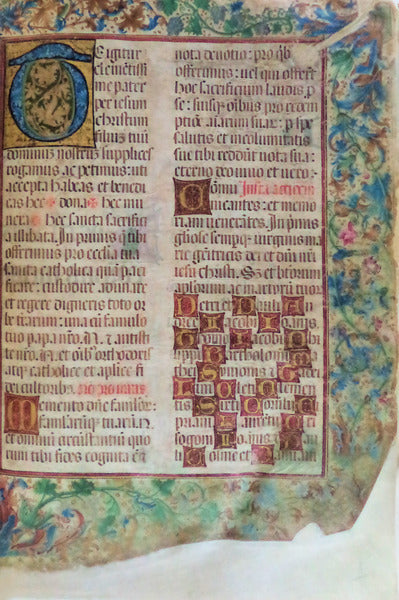 Te igitur
clemētissi
me pater
per iesum
christum
filiuz tuū
dominuz nostruz supplices
rogamus ac petimus: uti
accepta habeas et benedi
cas hec dona hec mu
nera hec sancta sacrifici
a illibata. In primis q̄ tibi
offerimus pro ecclia tua
sancta catholica quā paci
ficare: custodire adunare
et regere digneris toto or
be terrarum: una cū famulo
tuo papa nr̄o .N. et antisti
te nr̄o .N. et oīb' orthodoxis
atqz catholice et aplice fi
dei cultoribus.
Memento dn̄e famulor:
famularūqz tuarū .N.
et omniū circūstantiū quo
rum tibi fides cognita est
nota deuotio: pro q̄b
offerimus: uel qui offerūt
hoc sacrificium laudis p̄
se: suisqz oīb's pro redem
ptiōe aīarum suar: p̄ spe
salutis et incolumitatis
sue tibi reddūt uota sua:
eterno deo uiuo et uero:
Cōmu Infra actionem
nicantes: et memo
riam uenerātes. In p̄mis
gl̄iose semperqz uirginis ma
rie genitricis dei et dn̄i nr̄i
iesu christi. Sz et btōrum
apl̄orum ac martyrū tuor
Petri et Pauli
Andree Iacobi Ioānis
Thome Iacobi
Philippi Bartholomei
Mathei Simonis et
Lini Cleti Clemen
tis Sixti Cornelij
Cipriani
Crisogoni Ioānis et
Pauli Cosme et Damiani